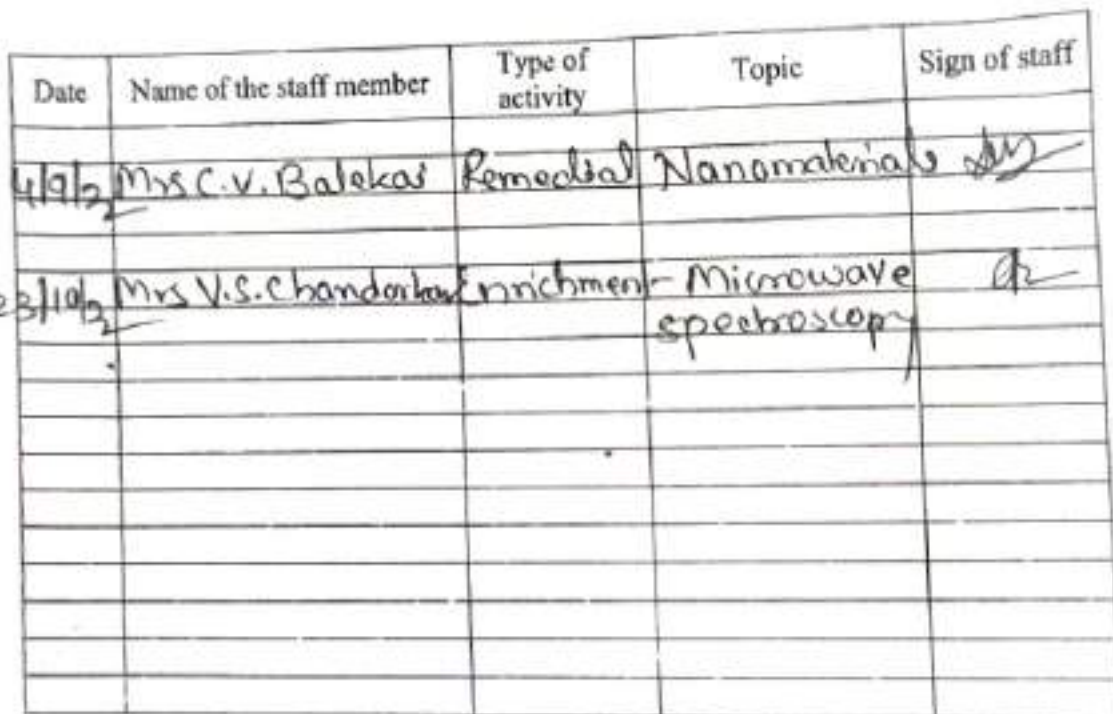 Date Name of the staff member Type of activity Topic Sign of staff
4/9/22 Mrs C.V. Balekai Remedial Nanomaterials
23/10/22 Mrs V.S. Chandorkar Enrichment Microwave
spectroscopy